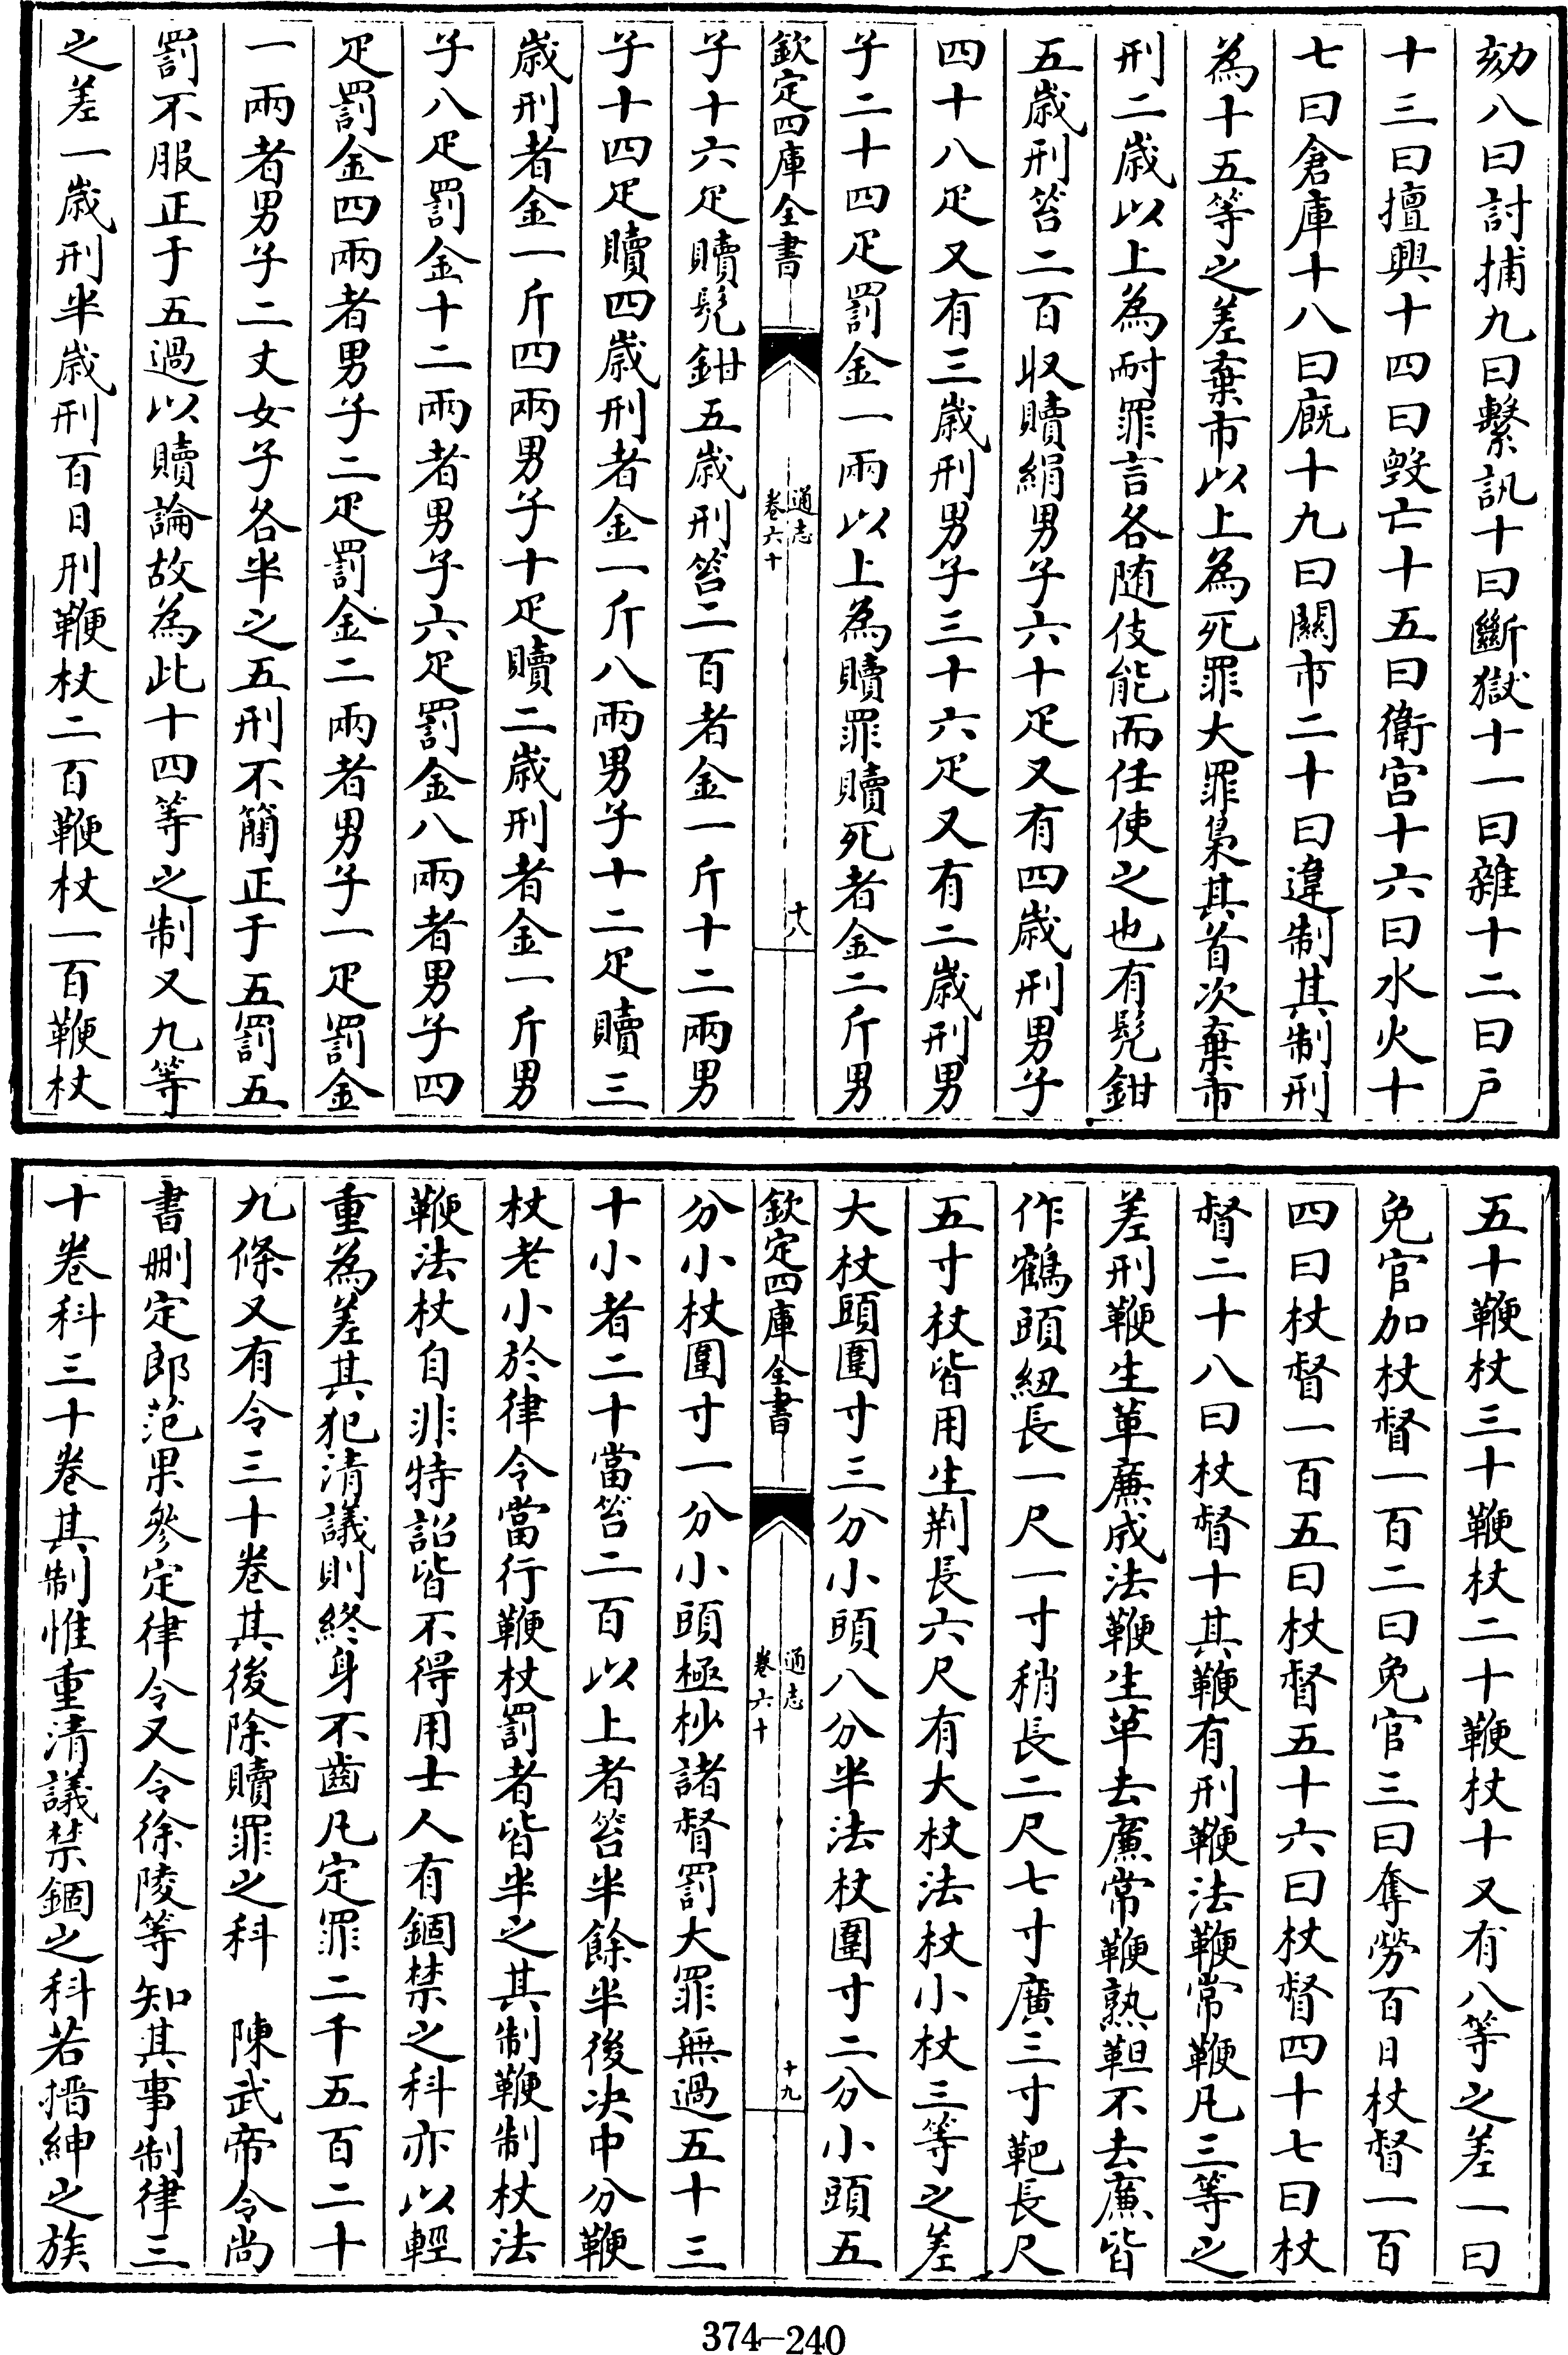 劾八曰討捕九曰繫訊十曰斷獄十一曰雜十二曰戸
十三曰擅興十四曰毀亡十五曰衛宫十六曰水火十
七曰倉庫十八曰廐十九曰關市二十曰違制其制刑
為十五等之差棄市以上為死罪大罪梟其首次棄市
刑二歳以上為耐罪言各随伎能而任使之也有髠鉗
五歳刑笞二百収贖絹男子六十疋又有四歳刑男子
四十八疋又有三歳刑男子三十六疋又有二歳刑男
子二十四疋罰金一兩以上為贖罪贖死者金二斤男
欽定四庫全書
通志
卷六十
十八
子十六疋贖髠鉗五歳刑笞二百者金一斤十二兩男
子十四疋贖四歳刑者金一斤八兩男子十二疋贖三
歳刑者金一斤四兩男子十疋贖二歳刑者金一斤男
子八疋罰金十二兩者男子六疋罰金八兩者男子四
疋罰金四兩者男子二疋罰金二兩者男子一疋罰金
一兩者男子二丈女子各半之五刑不簡正于五罰五
罰不服正于五過以贖論故為此十四等之制又九等
之差一歳刑半歳刑百日刑鞭杖二百鞭杖一百鞭杖
五十鞭杖三十鞭杖二十鞭杖十又有八等之差一曰
免官加杖督一百二曰免官三曰奪勞百日杖督一百
四曰杖督一百五曰杖督五十六曰杖督四十七曰杖
督二十八曰杖督十其鞭有刑鞭法鞭常鞭凡三等之
差刑鞭生革廉成法鞭生革去廉常鞭熟靼不去廉皆
作鶴頭紐長一尺一寸稍長二尺七寸廣三寸靶長尺
五寸杖皆用生荆長六尺有大杖法杖小杖三等之差
大杖頭圍寸三分小頭八分半法杖圍寸二分小頭五
欽定四庫全書
通志
卷六十
十九
分小杖圍寸一分小頭極杪諸督罰大罪無過五十三
十小者二十當笞二百以上者笞半餘半後决中分鞭
杖老小於律令當行鞭杖罰者皆半之其制鞭制杖法
鞭法杖自非特詔皆不得用士人有錮禁之科亦以輕
重為差其犯清議則終身不齒凡定罪二千五百二十
九條又有令三十卷其後除贖罪之科　陳武帝令尚
書刪定郎范果參定律令又令徐陵等知其事制律三
十卷科三十卷其制惟重清議禁錮之科若搢紳之族
374-240